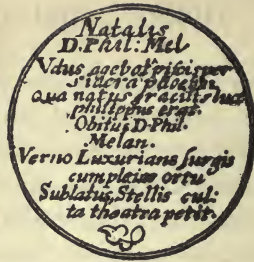 Natalis
D. Phil: Mel
Vdus agebat
Qua natus gracili luce
philippus erat.
Obitus D. Phil.
Melan.
Verno Luxurians surgis
cum pleias ortu
Sublatus, Stellis cul:
ta theatra petit.